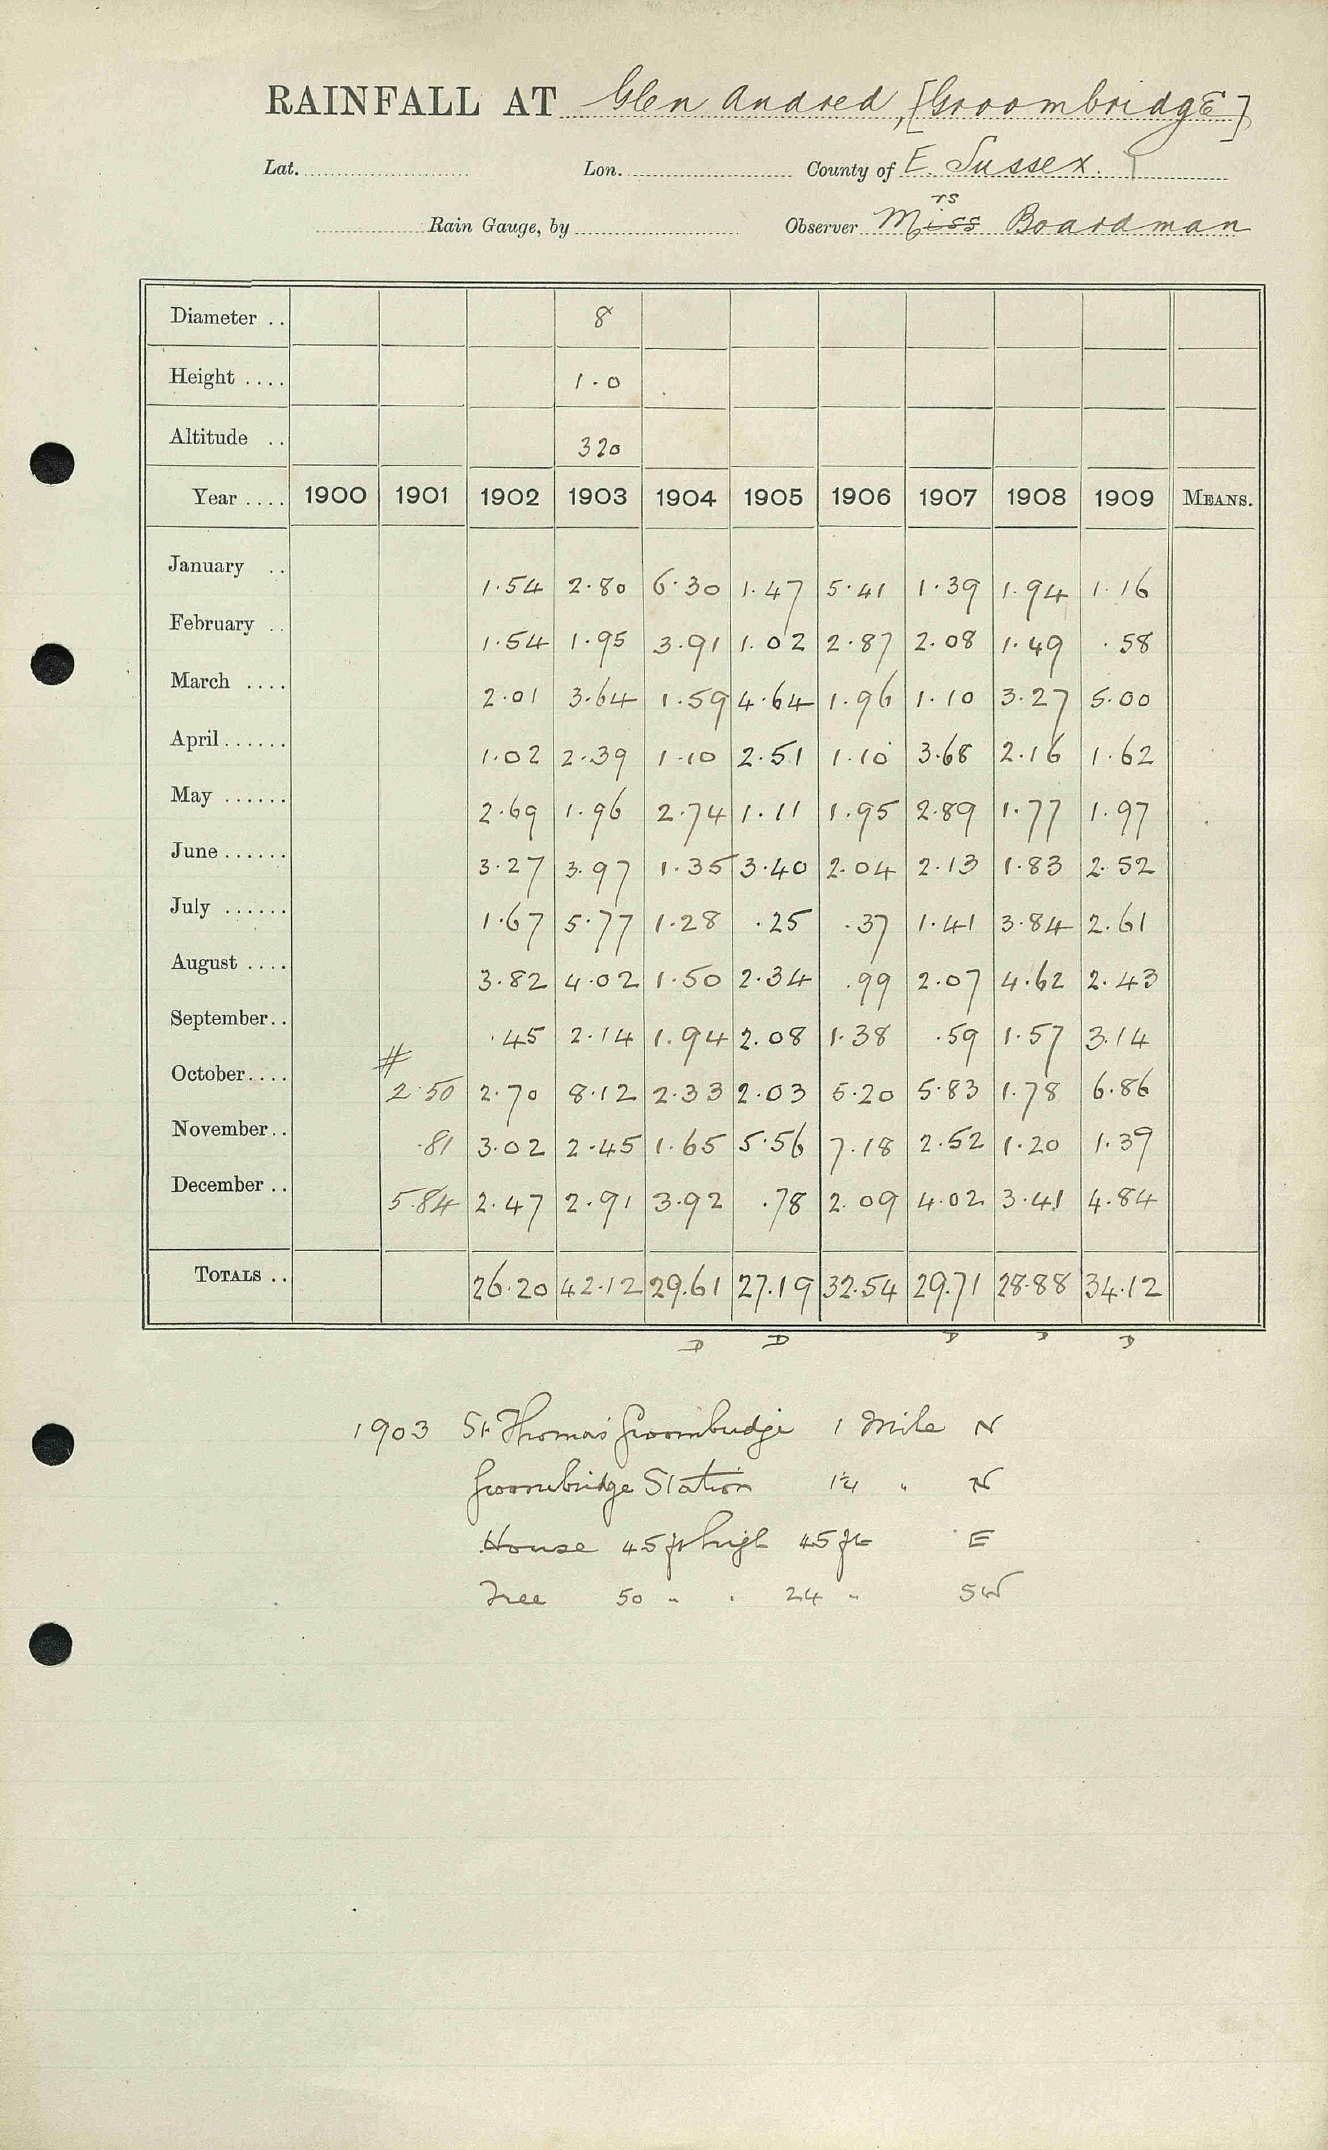 RAINFALL AT Glen Andred, [Groombridge]
Lat. Lon. County of E. Sussex.
Rain Gauge, by Observer Miss rs Boardman
Diameter .. 8
Height .... 1.0
Altitude .. 320
Year .... 1900 1901 1902 1903 1904 1905 1906 1907 1908 1909 MEANS.
January .. 1.54 2.80 6.30 1.47 5.41 1.39 1.94 1.16
February .. 1.54 1.95 3.91 1.02 2.87 2.08 1.49 .58
March .... 2.01 3.64 1.59 4.64 1.96 1.10 3.27 5.00
April...... 1.02 2.39 1.10 2.51 1.10 3.68 2.16 1.62
May ...... 2.69 1.96 2.74 1.11 1.95 2.89 1.77 1.97
June...... 3.27 3.97 1.35 3.40 2.04 2.13 1.83 2.52
July ...... 1.67 5.77 1.28 .25 .37 1.41 3.84 2.61
August .... 3.82 4.02 1.50 2.34 .99 2.07 4.62 2.43
September.. .45 2.14 1.94 2.08 1.38 .59 1.57 3.14
#
October.... 2.50 2.70 8.12 2.33 2.03 5.20 5.83 1.78 6.86
November.. .81 3.02 2.45 1.65 5.56 7.18 2.52 1.20 1.39
December .. 5.84 2.47 2.91 3.92 .78 2.09 4.02 3.41 4.84
TOTALS .. 26.20 42.12 29.61 27.19 32.54 29.71 28.88 34.12
D D D D D
1903 St Thomas' Groombridge 1 Mile N
Groombridge Station 1¼ " N
House 45 ft high 45 ft E
Tree 50 " " 24 " SW